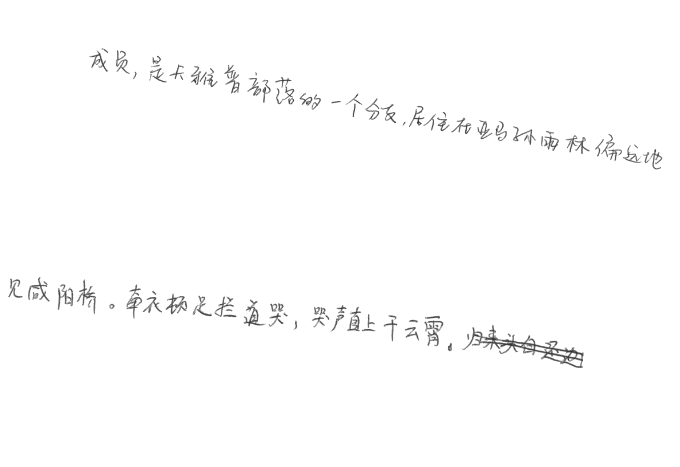 成员,是卡雅普部落的一个分支,居住在亚马孙雨林偏远地
见咸阳桥。牵衣顿足拦道哭,哭声直上干云霄。归来头白还边